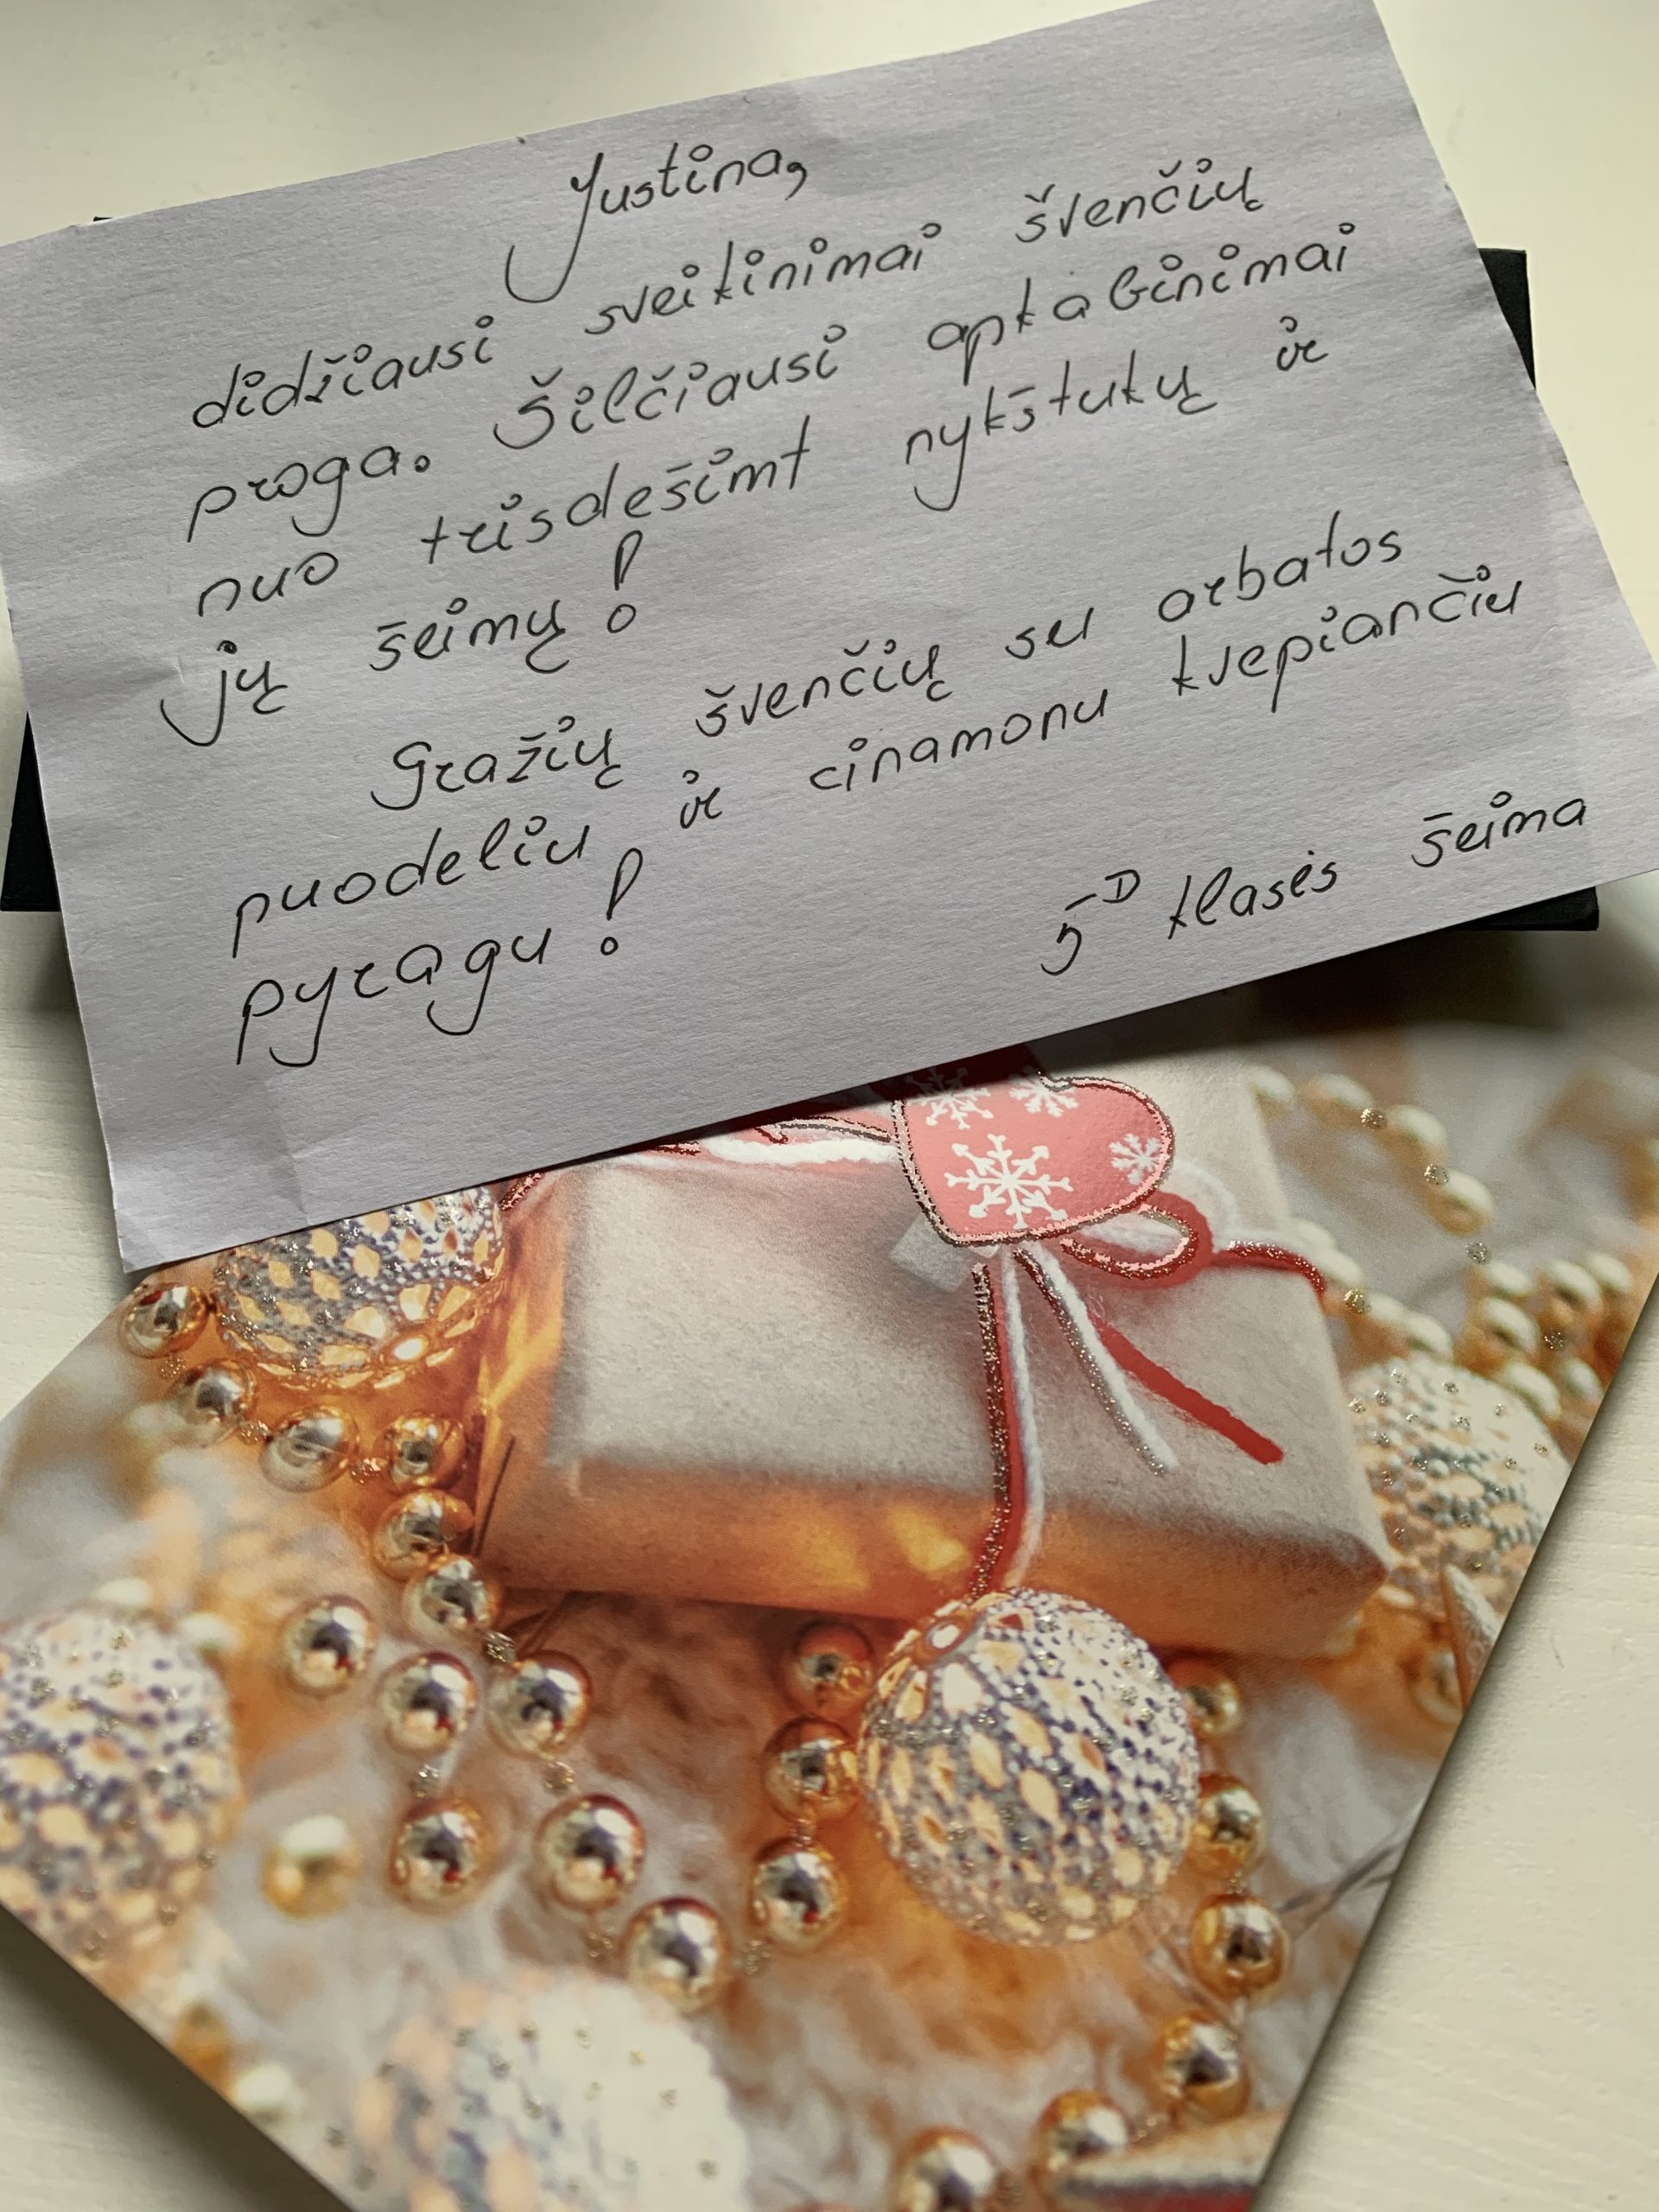 Justina,
didžiausi sveikinimai švenčių
proga. Šilčiausi apkabinimai
nuo trisdešimt nykštukų ir
jų šeimų!
Gražių švenčių su arbatos
puodeliu ir cinamonu kvepiančiu
pyragu!
5D klasės šeima